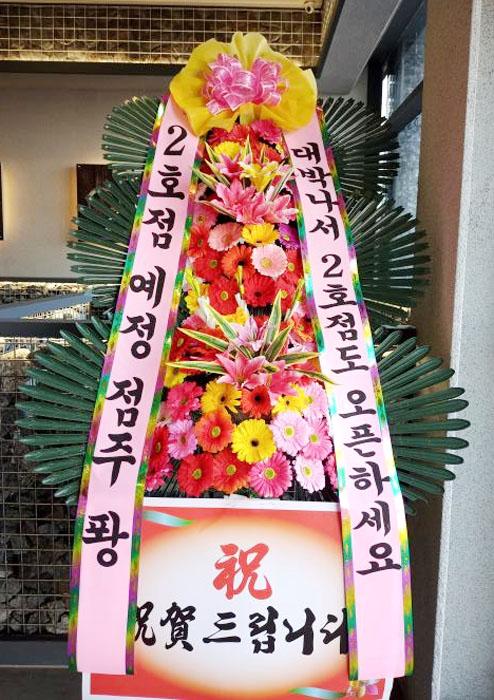 2호점 예정 점주 퐝
대박나서 2호점도 오픈하세요
祝
祝賀 드립니다